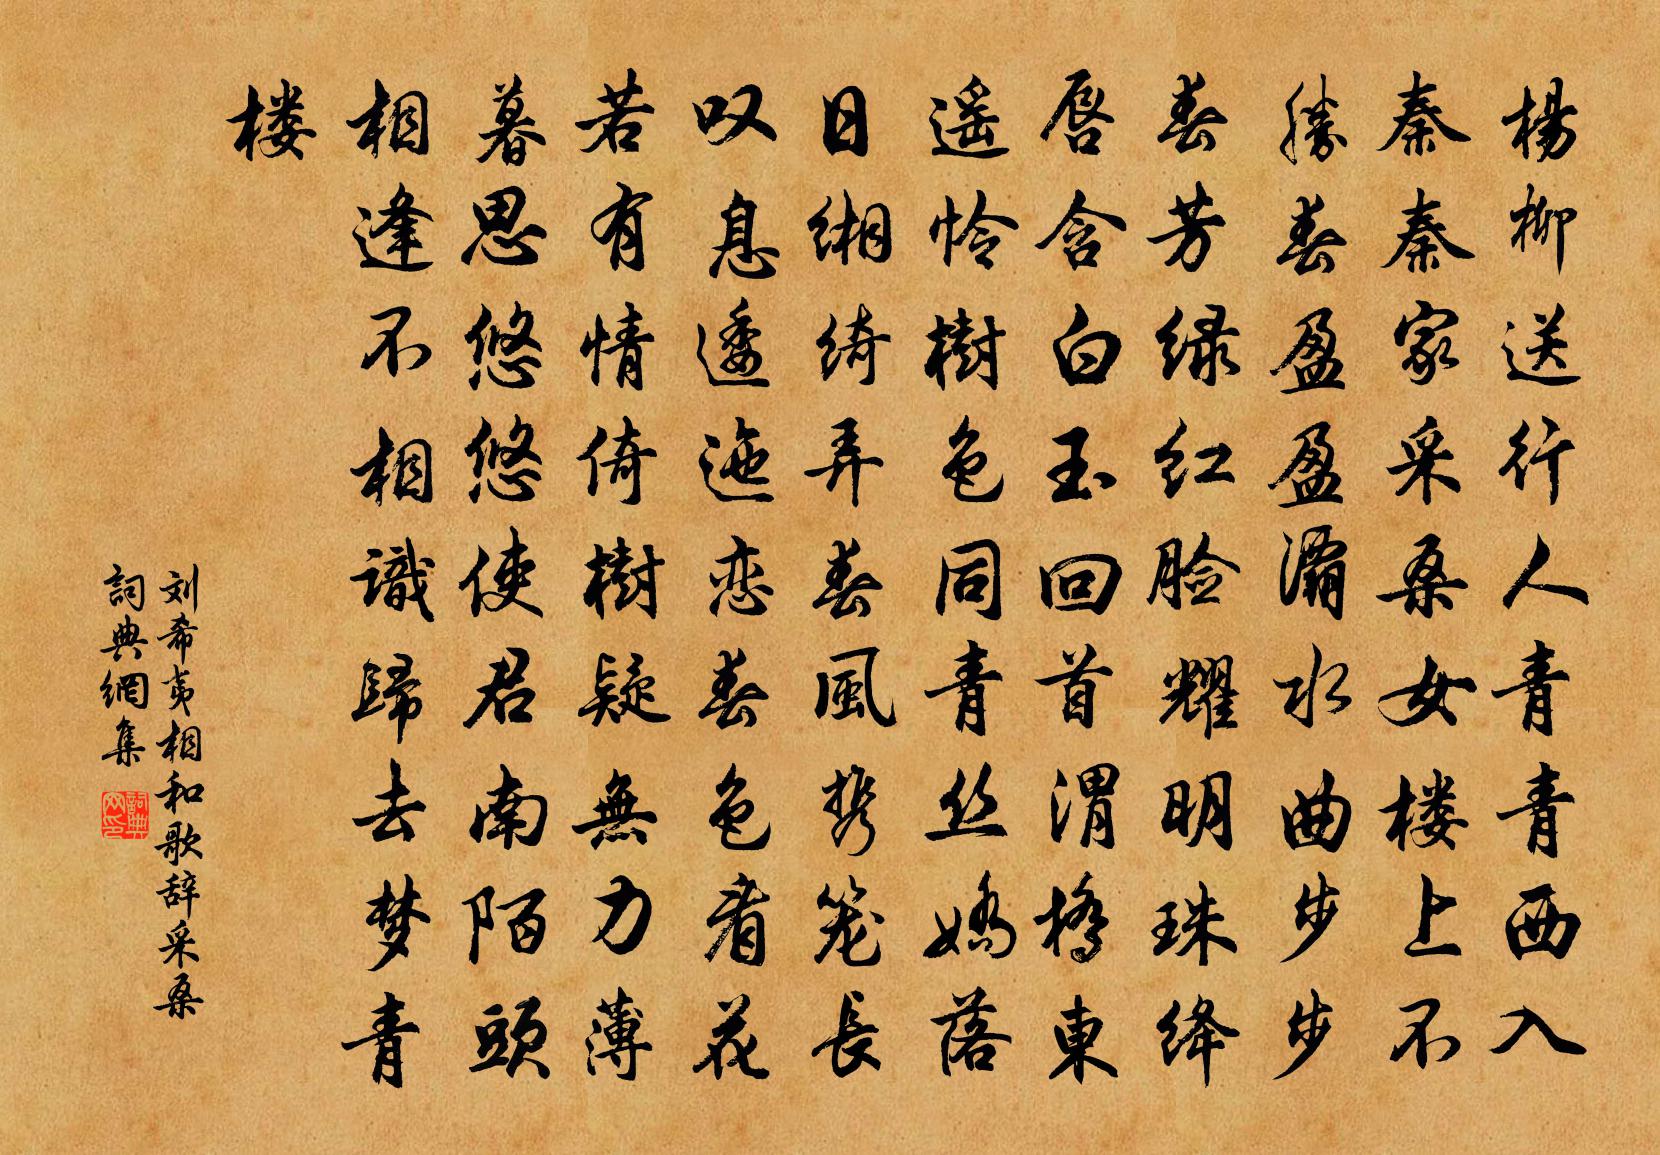 楊柳送行人青青西入
秦秦家采桑女楼上不
勝春盈盈灞水曲步步
春芳绿红脸耀明珠绛
唇含白玉回首渭橋東
遥怜樹色同青丝嬌落
日缃绮弄春風携笼長
叹息逶迤恋春色看花
若有情倚樹疑無力薄
暮思悠悠使君南陌頭
相逢不相識歸去梦青
楼
刘希夷相和歌辞采桑
詞典網集
詞典网印